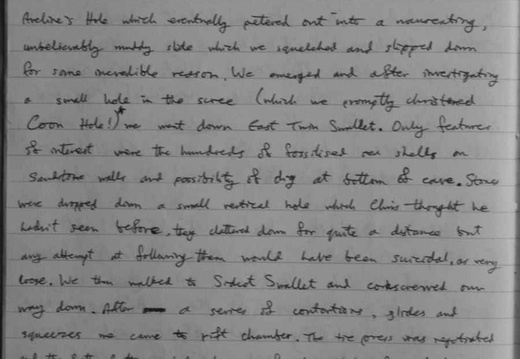 Aveline's Hole which eventually petered out into a nauseating,
unbelievably muddy slide which we squelched and slipped down
for some incredible reason. We emerged and after investigating
a small hole in the scree (which we promptly christened
Coon Hole!)* we went down East Twin Swallet. Only features
of interest were the hundreds of fossilised sea shells on
sandstone walls and possibility of dig at bottom of cave. Stones
were dropped down a small vertical hole which Chris thought he
hadn't seen before, they clattered down for quite a distance but
any attempt at following them would have been suicidal, as very
loose. We then walked to Sidcot Swallet and corkscrewed our
way down. After a series of contortions, glides and
squeezes we came to rift chamber. The tie press was negotiated